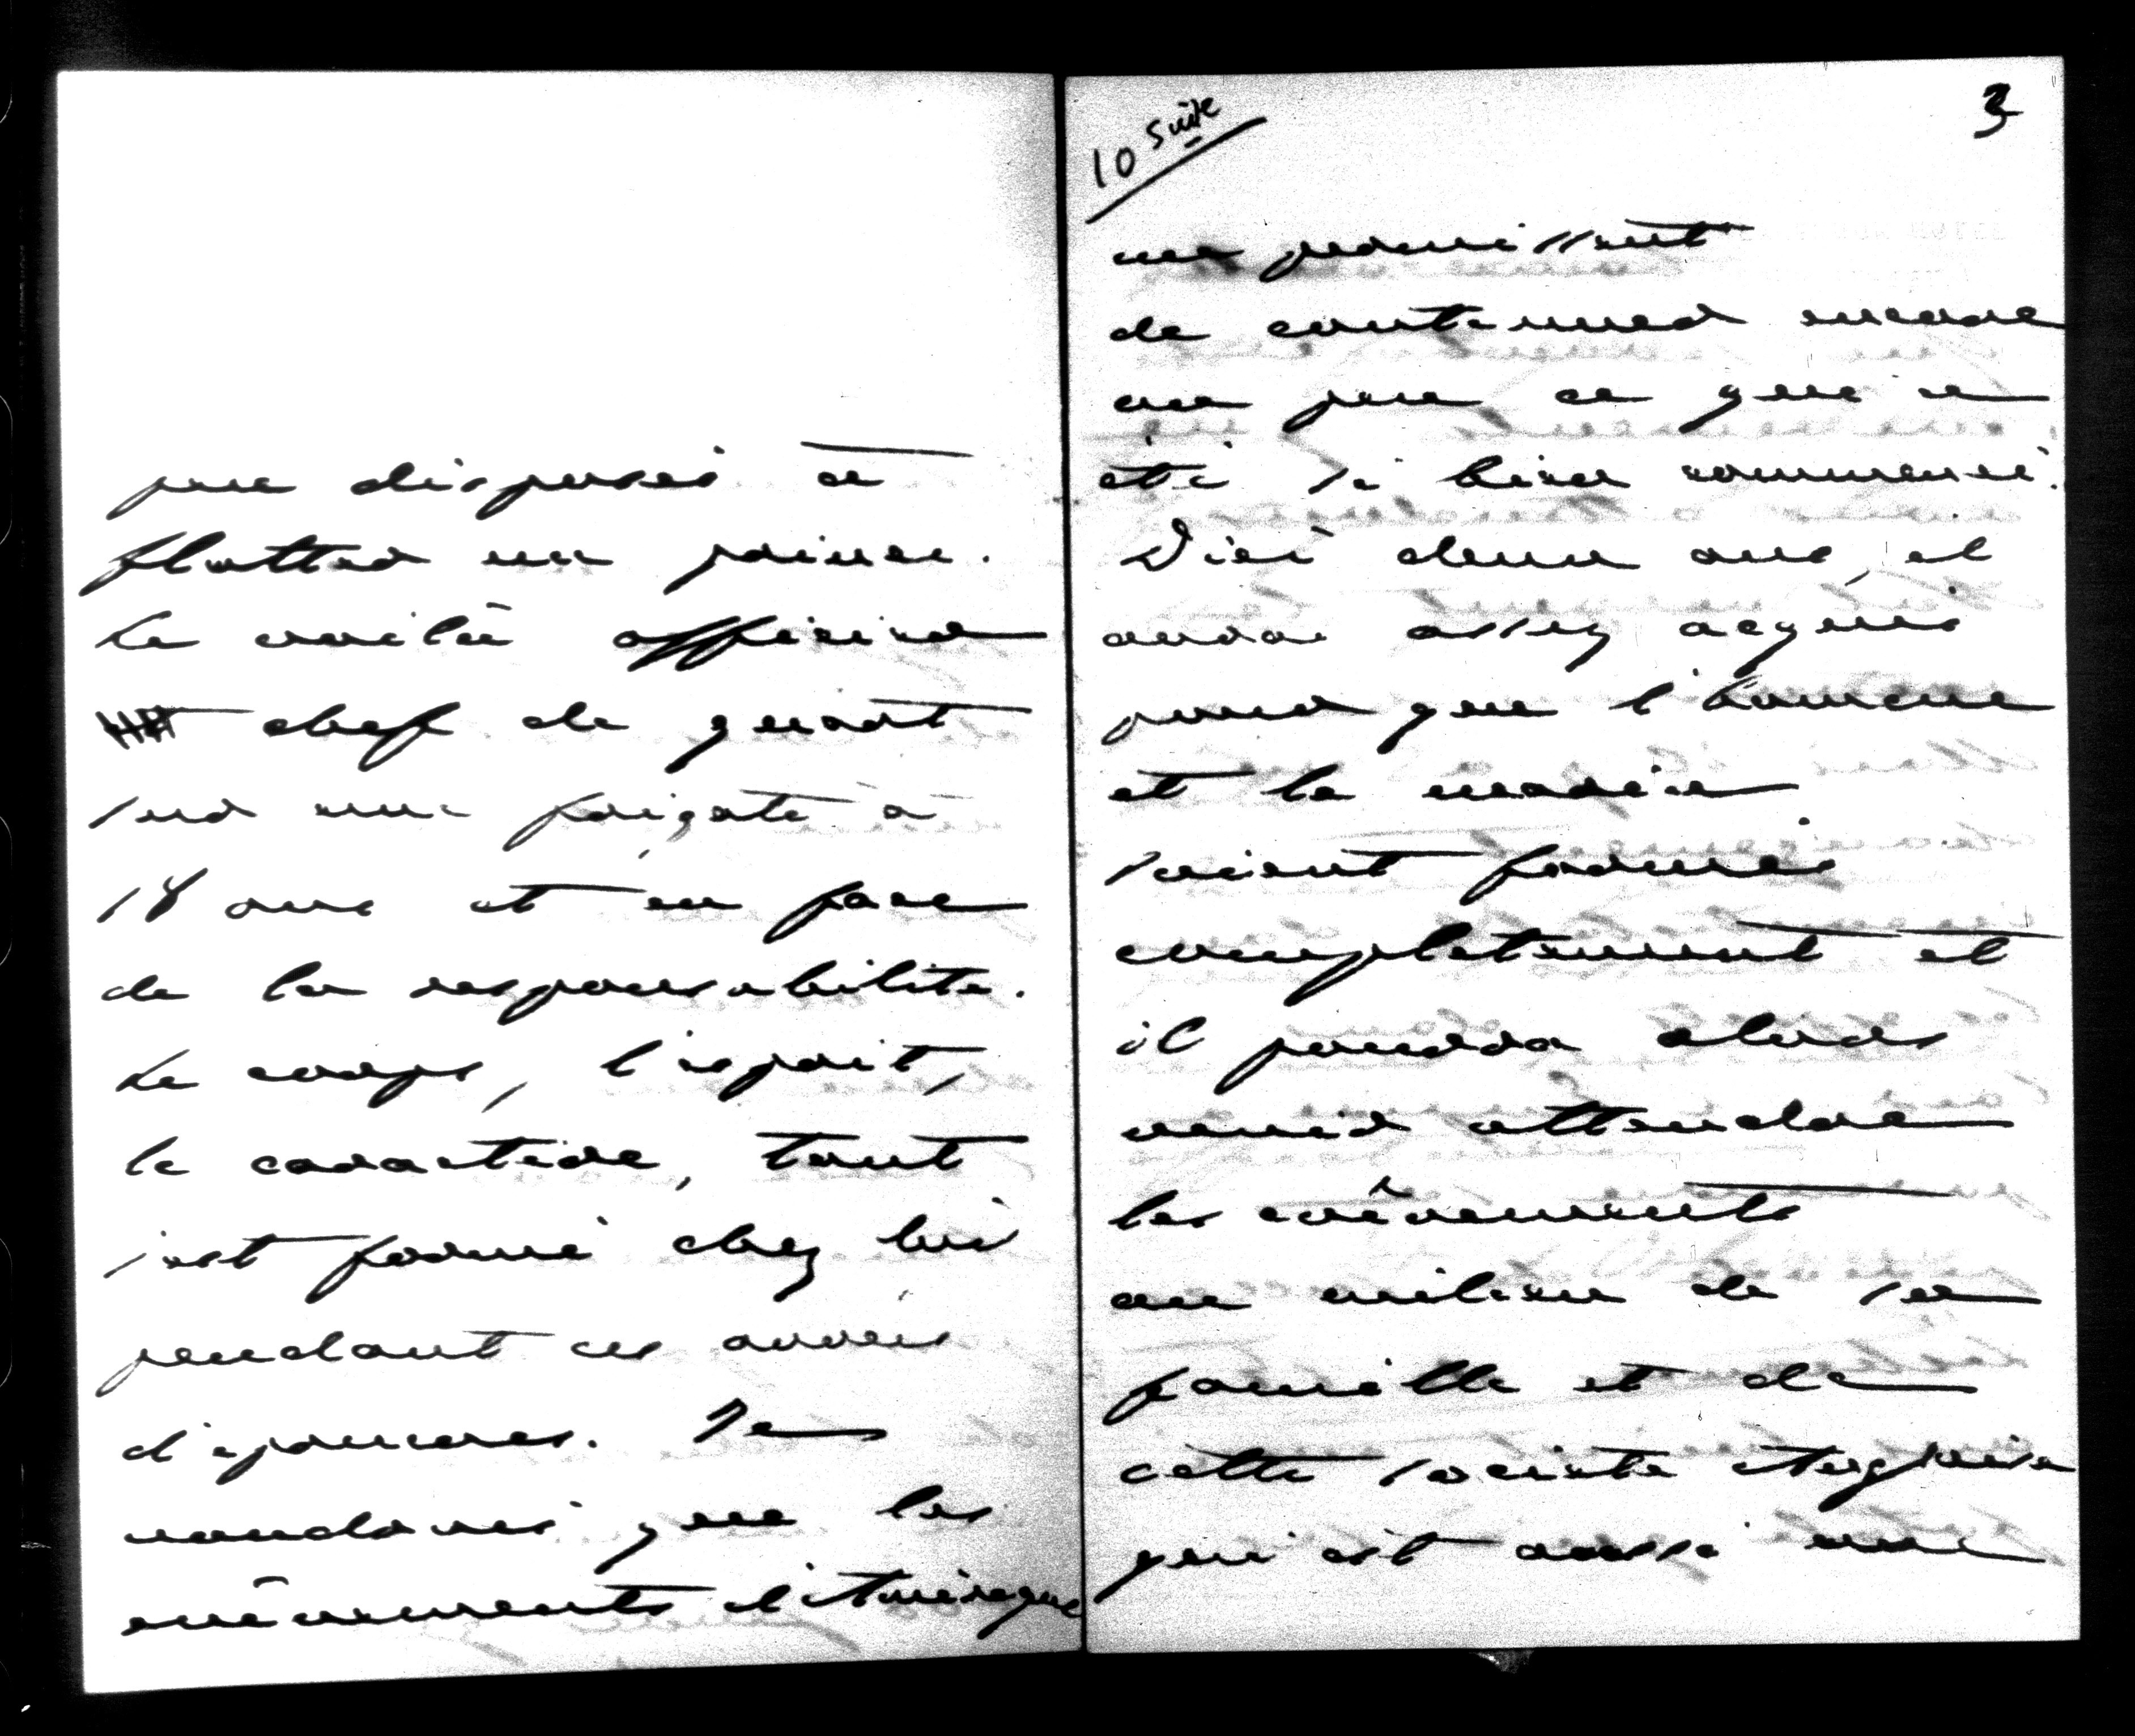 peu disposés à
flatter un prince.
Le voilà officier
chef de quart
sur une frégate à
18 ans et en face
de la responsabilité.
Le corps, l'esprit,
le caractère, tout
s'est formé chez lui
pendant ces années
d'épreuves. Je
voudrais que les
évènements d'Amérique
10 suite
3
me permissent
de continuer encore
un peu ce qui a
été si bien commencé.
D'ici deux ans, il
aura assez acquis
pour que l'homme
et le marin
soient formés
complètement et
il pourra alors
venir attendre
les évènements
au milieu de sa
famille et de
cette société Anglaise
qui est aussi une